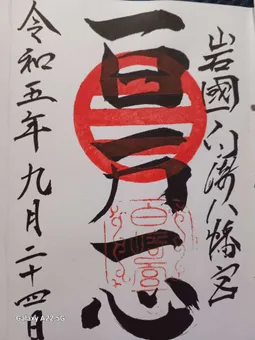 岩國白崎八幡宮
一日一力一心
令和五年九月二十四日
Galaxy A22 5G